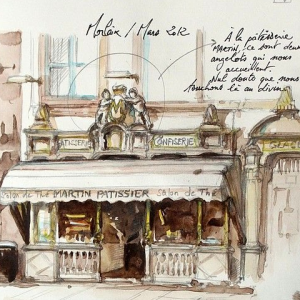 Morlaix / Mars 2012
À la pâtisserie
MARTIN, ce sont deux
angelots qui nous
accueillent.
Nul doute que nous
touchons là au divin.
PATISSERIE
CONFISERIE
Salon de Thé MARTIN PATISSIER Salon de Thé